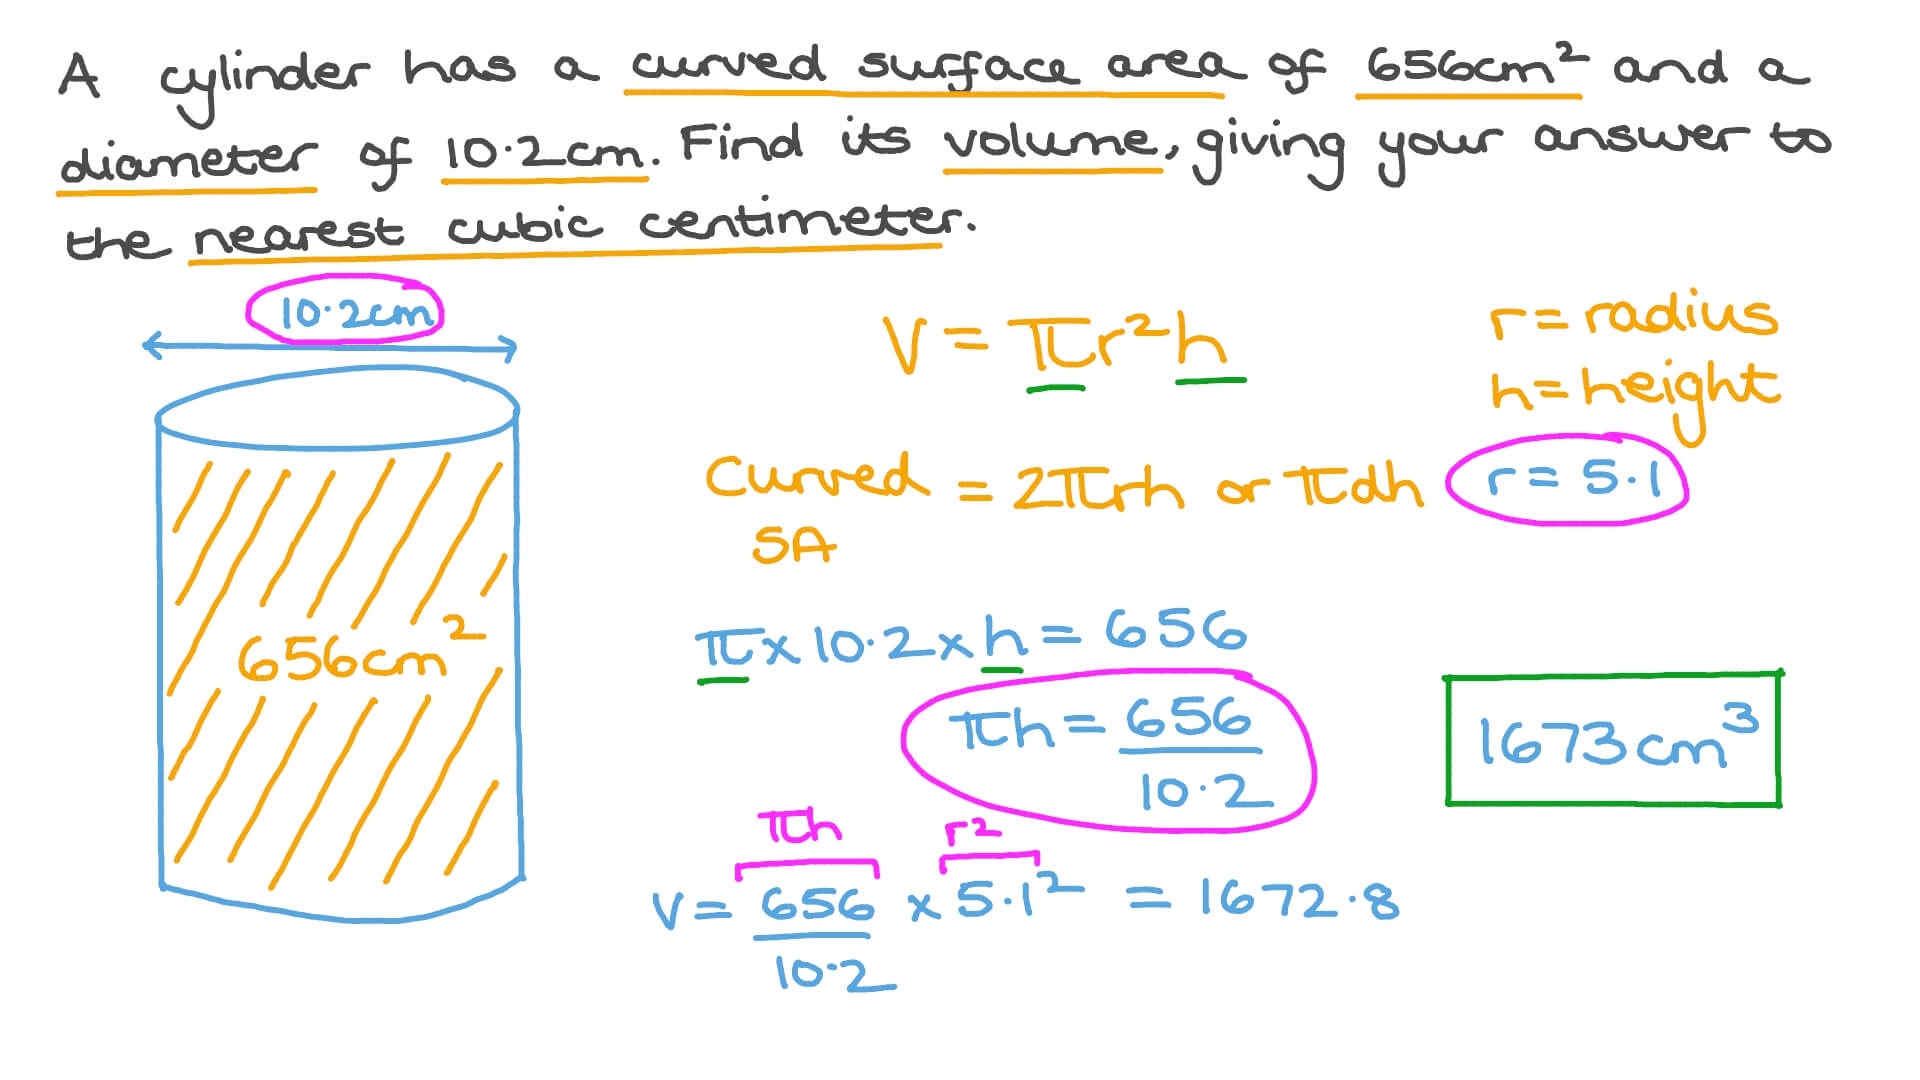 A cylinder has a curved surface area of 656cm² and a
diameter of 10.2cm. Find its volume, giving your answer to
the nearest cubic centimeter.
10.2cm
V = πr²h
r = radius
h = height
Curved SA = 2πrh or πdh
r = 5.1
656cm²
π x 10.2 x h = 656
πh = 656/10.2
1673cm³
πh r²
V = 656/10.2 x 5.1² = 1672.8